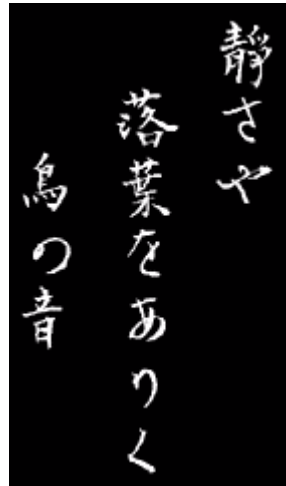 靜さや
落葉をありく
鳥の音